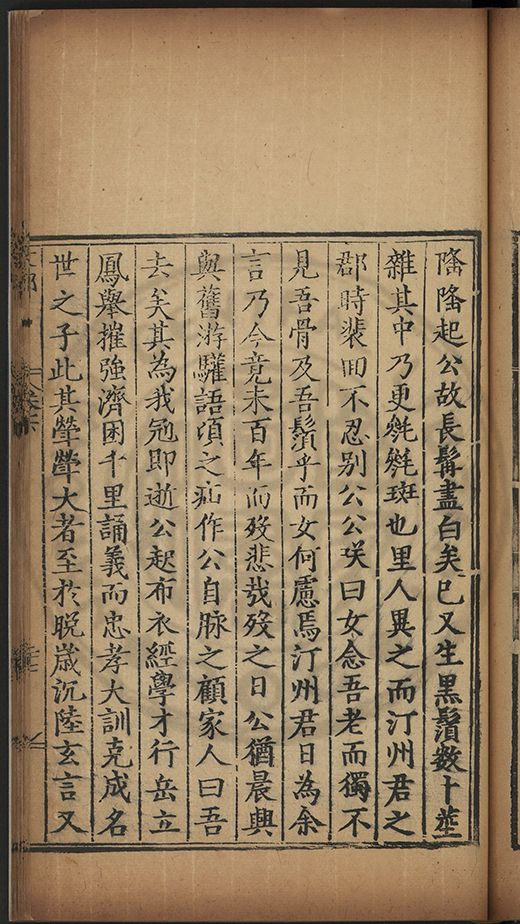 隆隆起公故長髯盡白矣巳又生黑鬚數十莖
雜其中乃更毿毿斑也里人異之而汀州君之
郡時裴回不忍别公公咲曰女念吾老而獨不
見吾骨及吾鬚乎而女何慮焉汀州君日為余
言乃今竟未百年而歿悲哉歿之日公猶晨興
與舊游驩語頃之疝作公自脉之顧家人曰吾
去矣其為我冠即逝公起布衣經學才行岳立
鳳舉摧強濟困千里誦義而忠孝大訓克成名
世之子此其犖犖大者至於晚歲沉陸玄言又